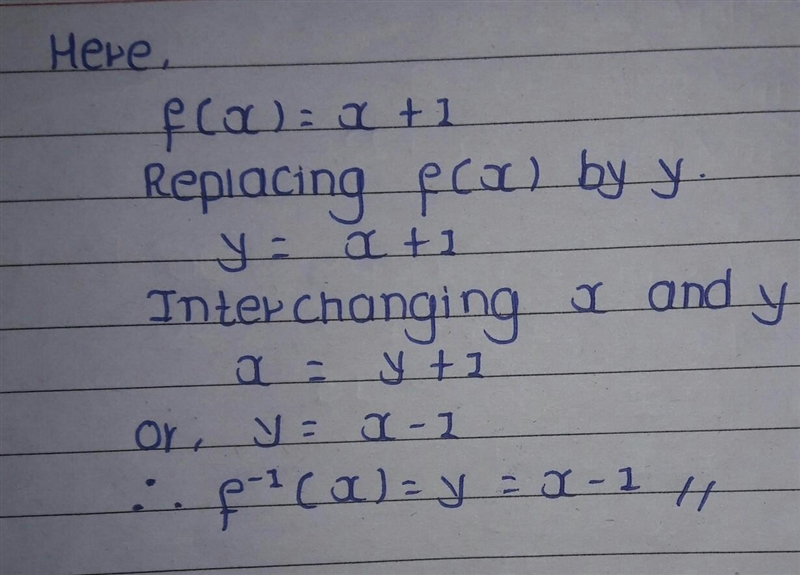 Here,
f(x) = x + 1
Replacing f(x) by y.
y = x + 1
Interchanging x and y
x = y + 1
or, y = x - 1
∴ f⁻¹(x) = y = x - 1 //